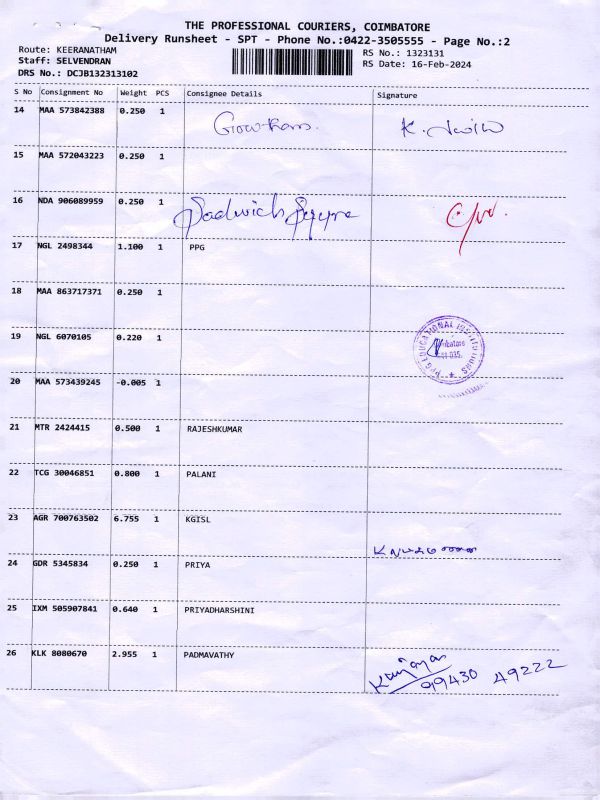 THE PROFESSIONAL COURIERS, COIMBATORE
Delivery Runsheet - SPT - Phone No.:0422-3505555 - Page No.:2
Route: KEERANATHAM
RS No.: 1323131
Staff: SELVENDRAN
RS Date: 16-Feb-2024
DRS No.: DCJB132313102
S No Consignment No Weight PCS Consignee Details Signature
14 MAA 573842388 0.250 1 Gowtham. K.
15 MAA 572043223 0.250 1
16 NDA 906089959 0.250 1
17 NGL 2498344 1.100 1 PPG
18 MAA 863717371 0.250 1
19 NGL 6070105 0.220 1
PPG EDUCATIONAL INSTITUTIONS
20 MAA 573439245 -0.005 1
21 MTR 2424415 0.500 1 RAJESHKUMAR
22 TCG 30046851 0.800 1 PALANI
23 AGR 700763502 6.755 1 KGISL
24 GDR 5345834 0.250 1 PRIYA
25 IXM 505907841 0.640 1 PRIYADHARSHINI
26 KLK 8080670 2.955 1 PADMAVATHY
99430 49222